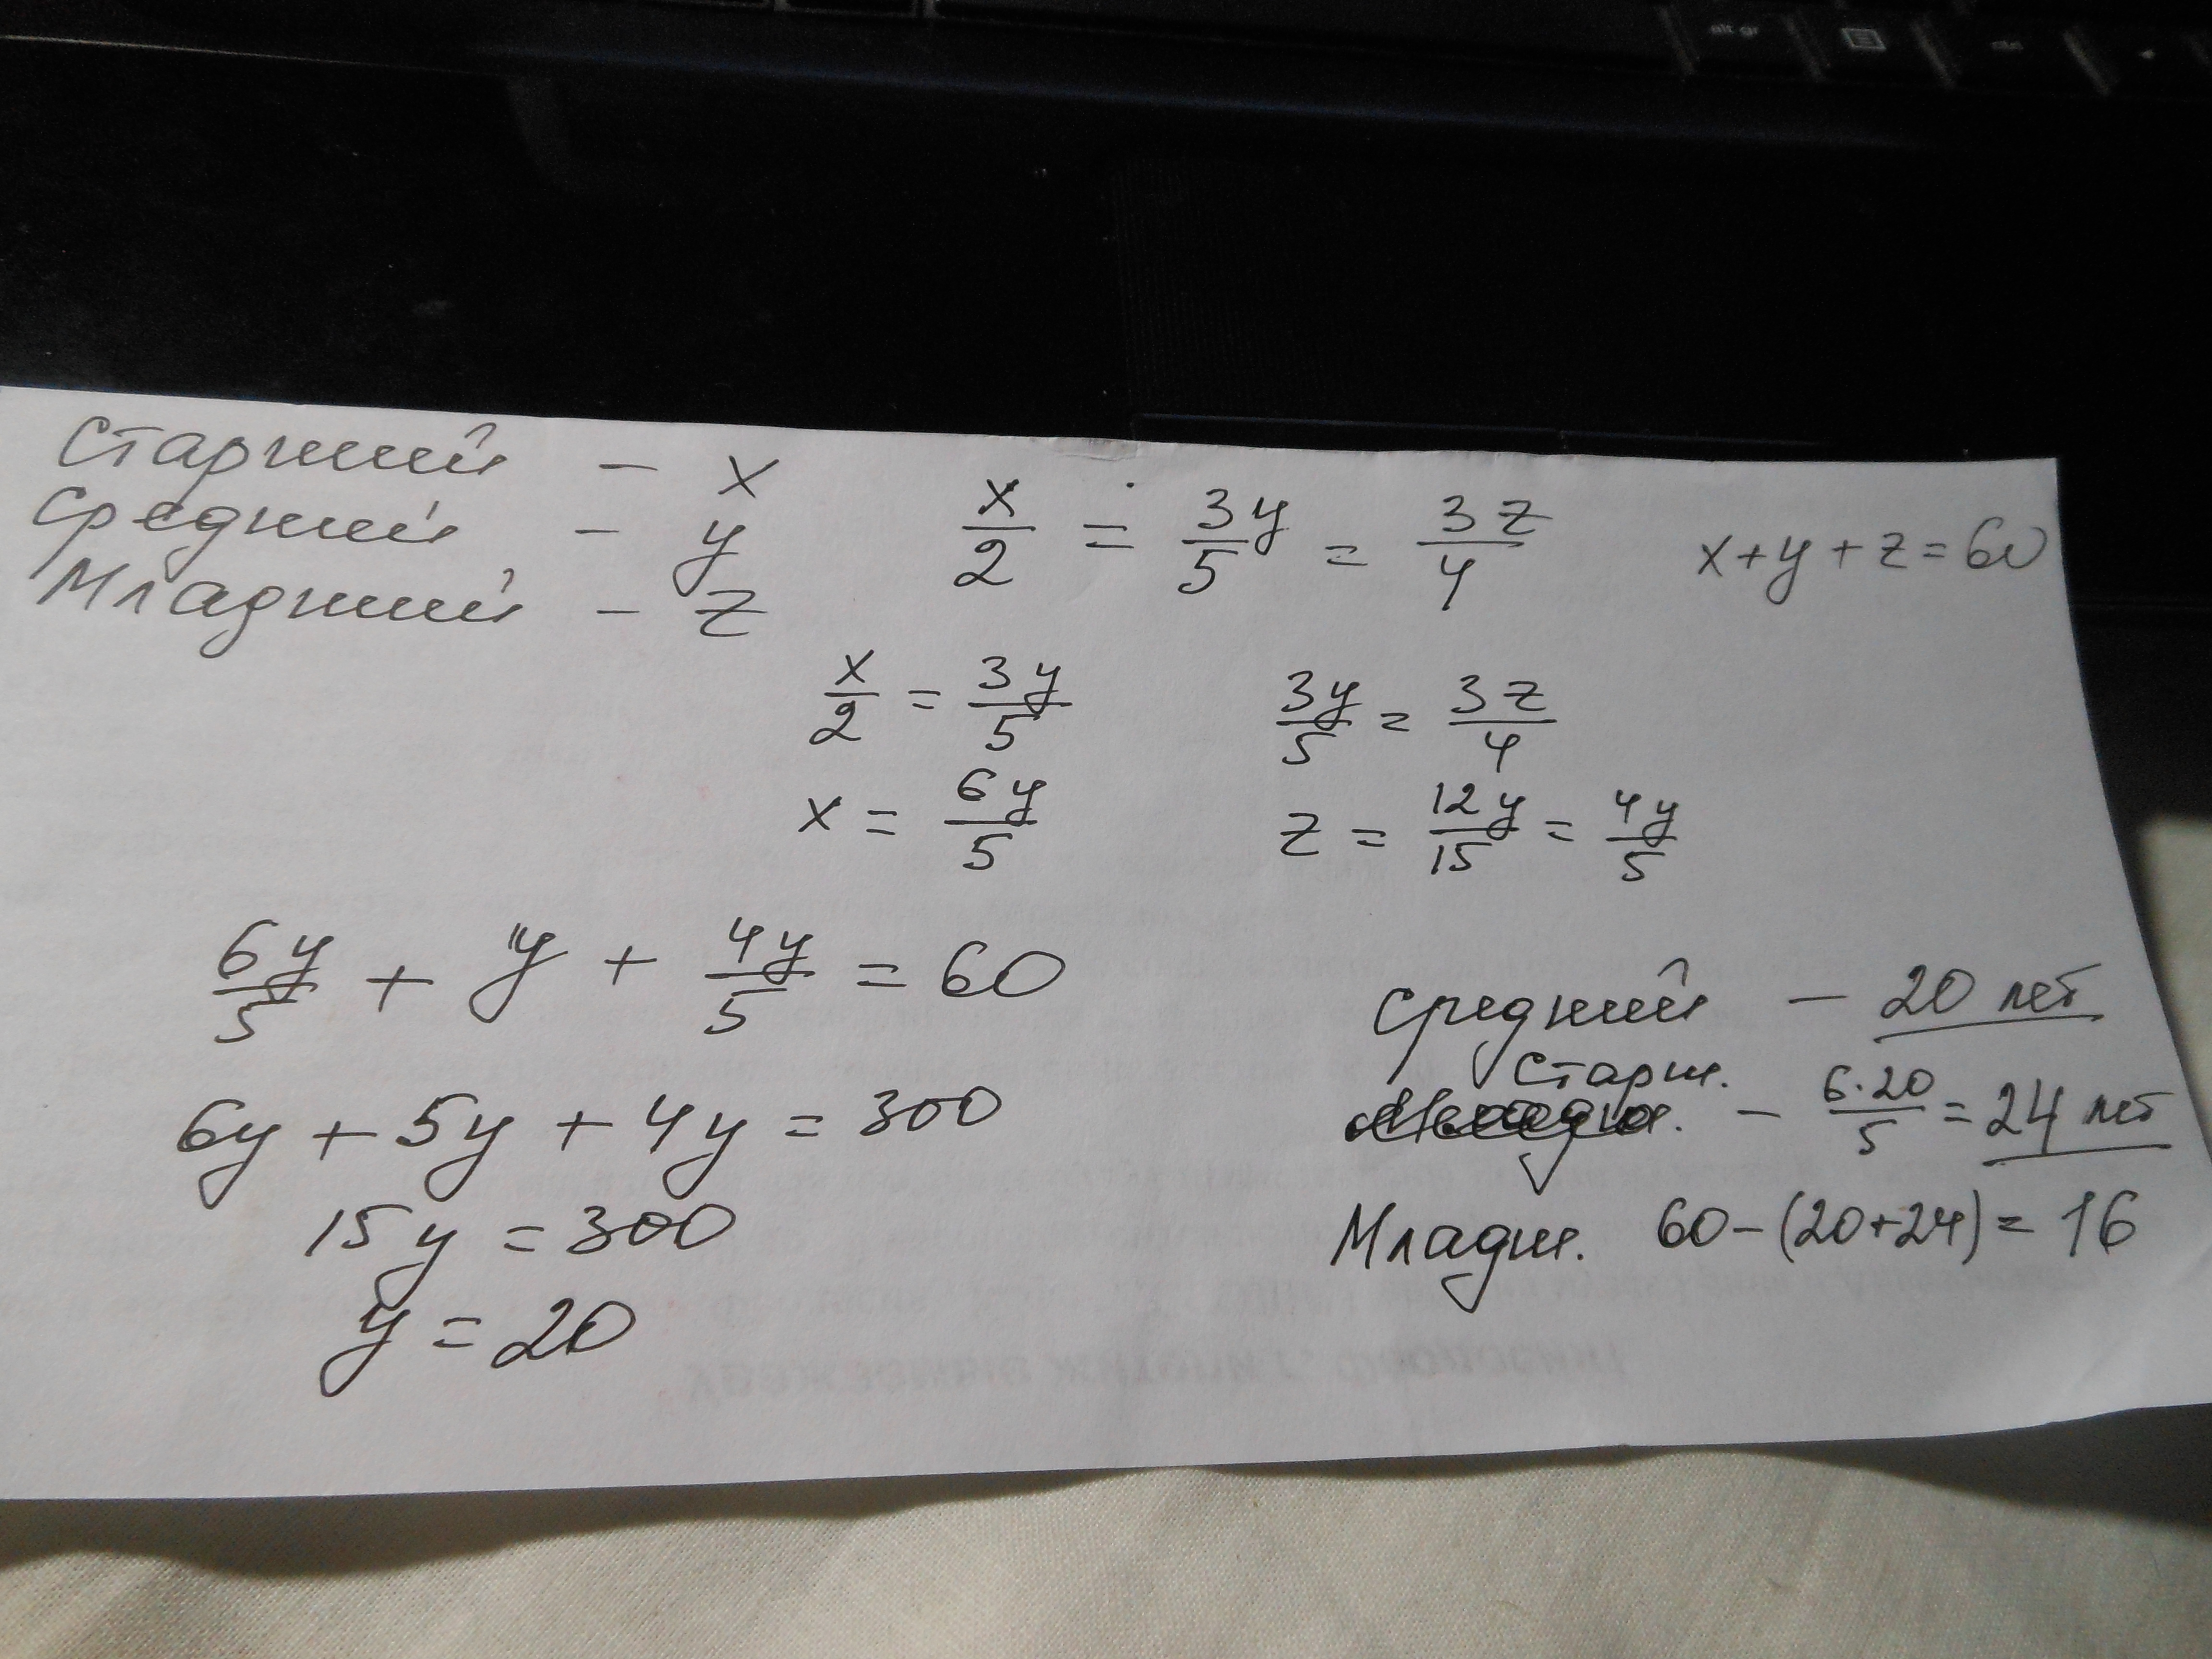 alt gr
Старший - x
Средний - y
Младший - z
x/2 = 3y/5 = 3z/4
x+y+z=60
x/2 = 3y/5
3y/5 = 3z/4
x = 6y/5
z = 12y/15 = 4y/5
6y/5 + y + 4y/5 = 60
6y + 5y + 4y = 300
15y = 300
y = 20
Средний - 20 лет
Старш. - 6·20/5 = 24 лет
Младш. 60-(20+24) = 16